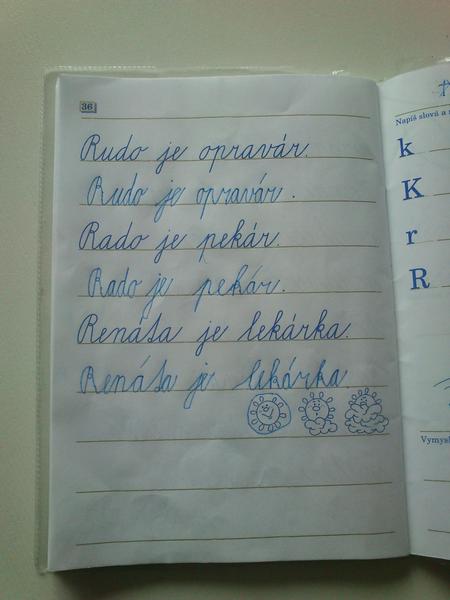 36
Rudo je opravár.
Rudo je opravár.
Rado je pekár.
Rado je pekár.
Renáta je lekárka.
Renáta je lekárka
Napíš slová a
k
K
r
R